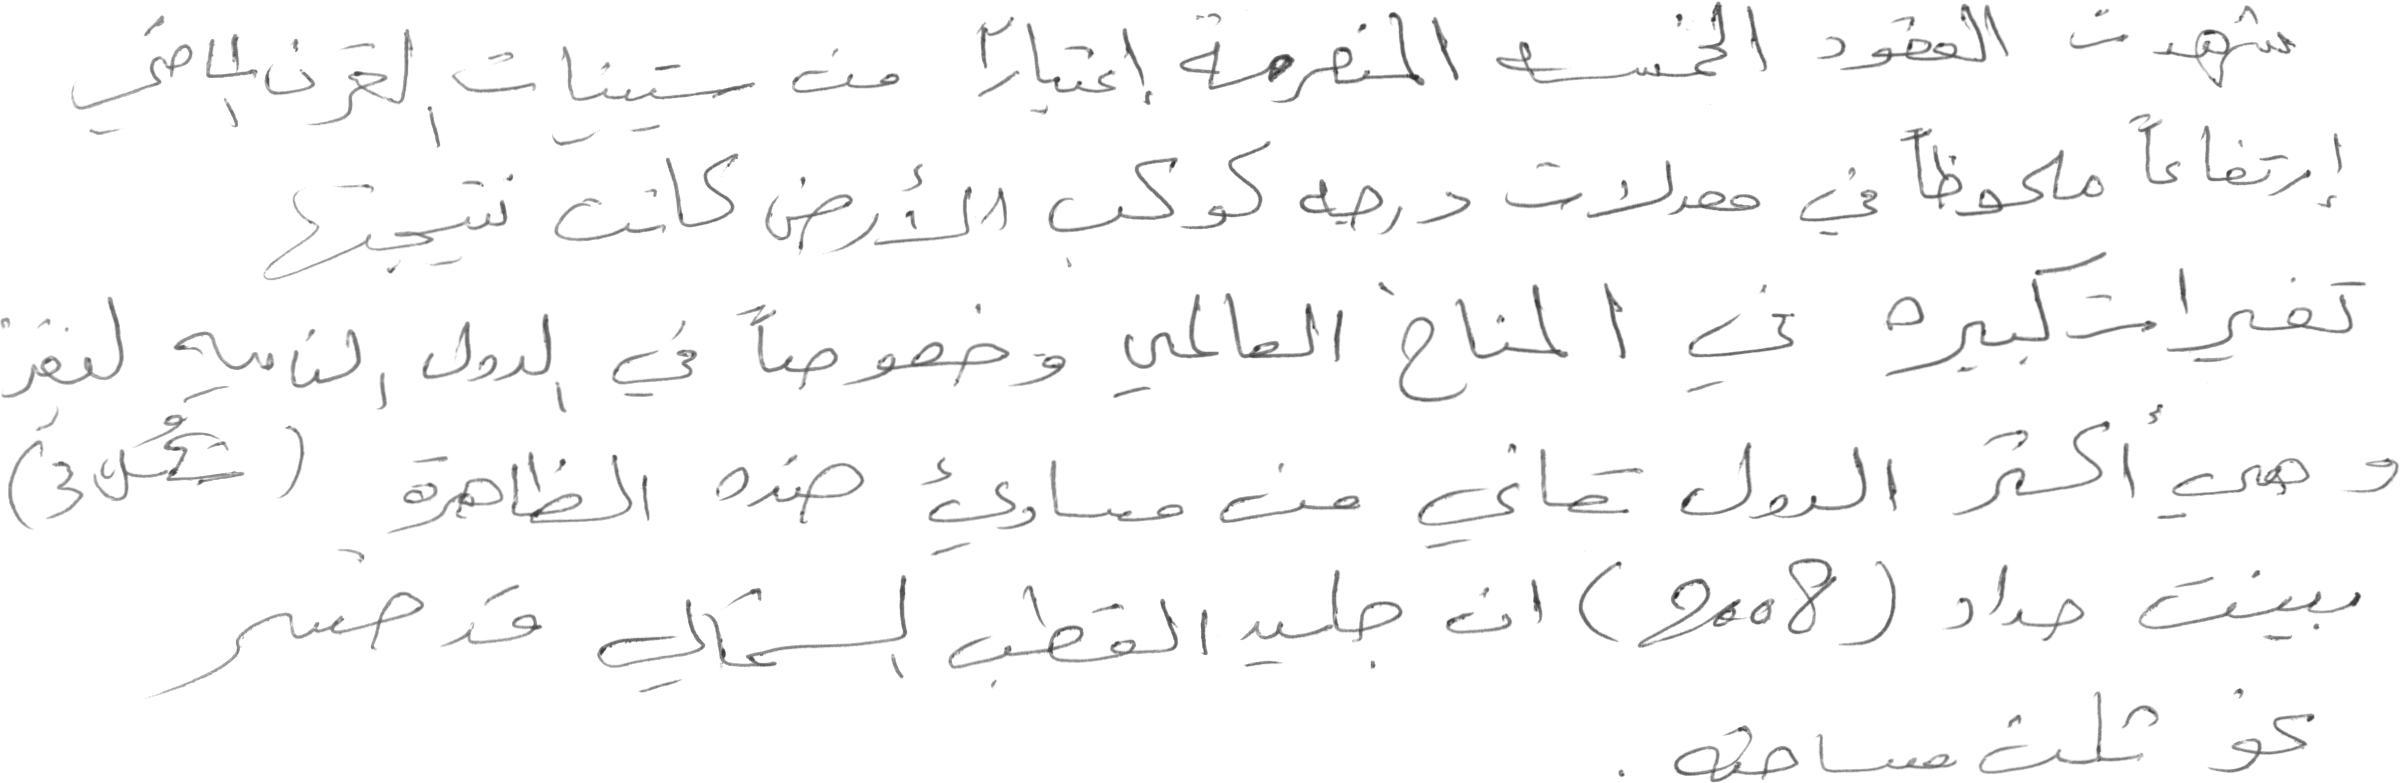 شهدت العقود الخمسه المنصرمة إعتبارًا من ستينات القرن الماضي
إرتفاعاً ملحوظاً في معدلات درجه كوكب الأرض كانت نتيجتها
تغيرات كبيره في المناخ العالمي وخصوصاً في الدول الناميه الفقر
وهي أكثر الدول تعاني من مساوئ هذه الظاهرة (شكل 3)
بينت حداد (2008) ان جليد القطب الشمالي قد خسر
نحو ثلث مساحته .